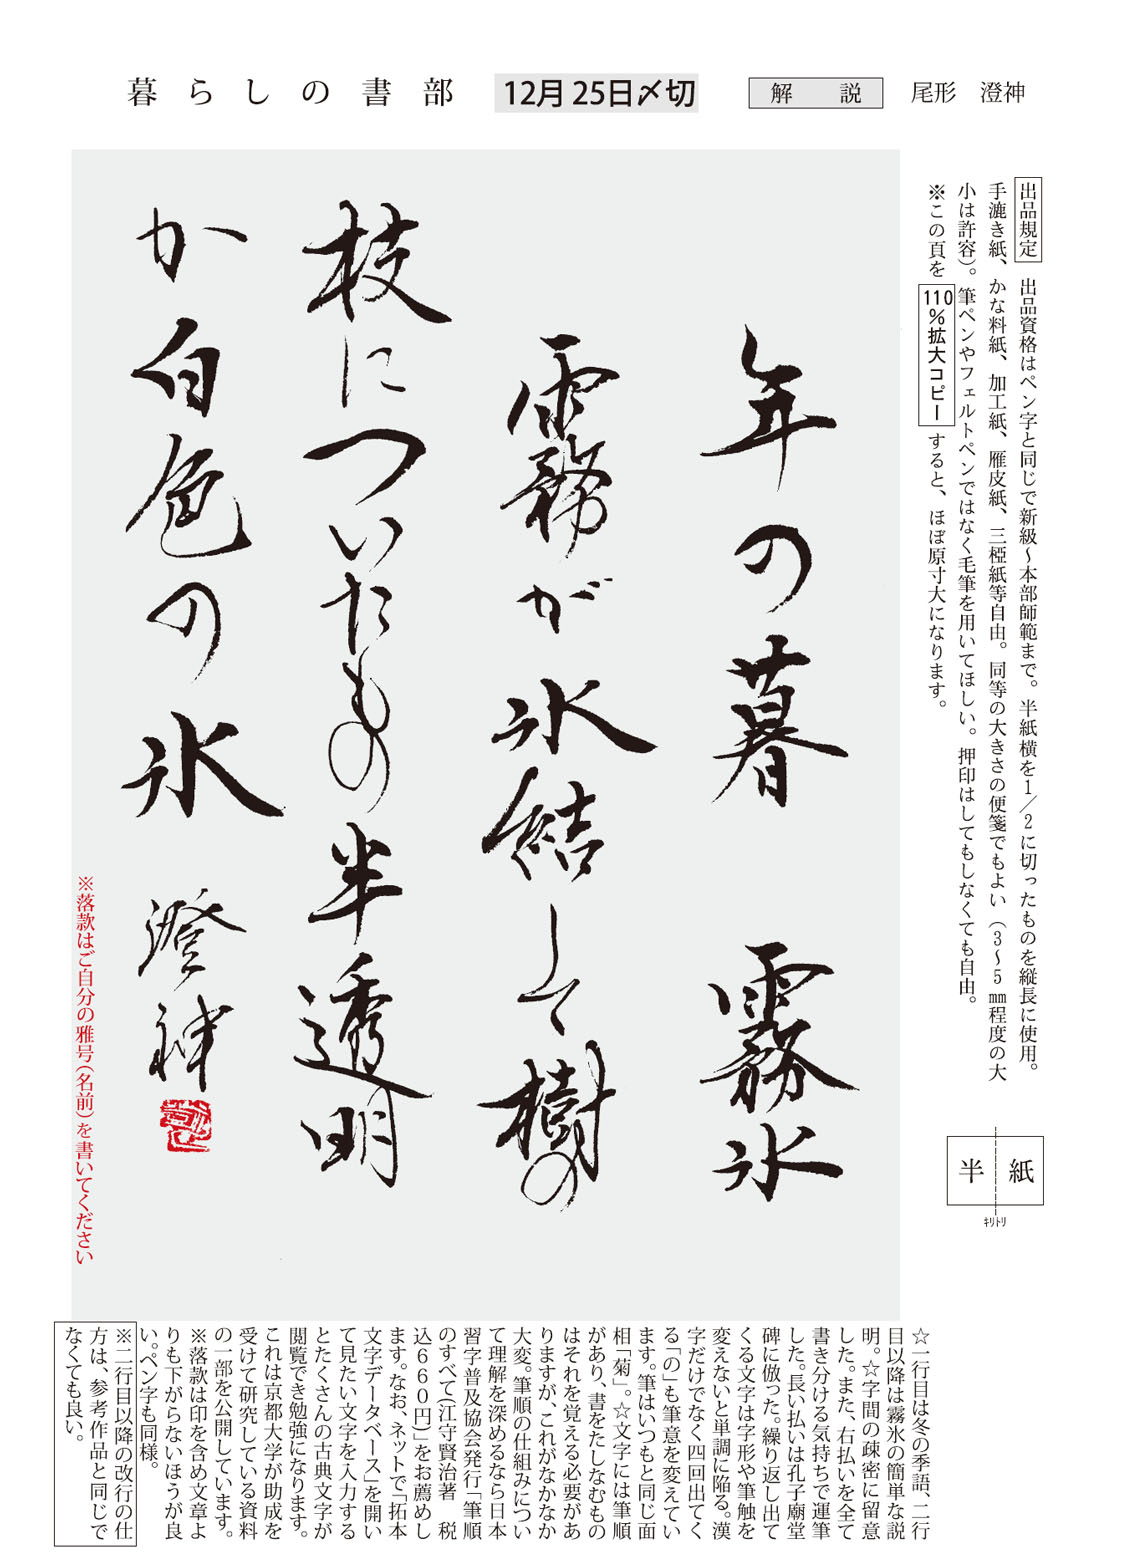 暮らしの書部 12月25日〆切 解説 尾形 澄神
出品規定 出品資格はペン字と同じで新級～本部師範まで。半紙横を1/2に切ったものを縦長に使用。
手漉き紙、かな料紙、加工紙、雁皮紙、三椏紙等自由。同等の大きさの便箋でもよい（3～5㎜程度の大
小は許容）。筆ペンやフェルトペンではなく毛筆を用いてほしい。押印はしてもしなくても自由。
※この頁を110％拡大コピーすると、ほぼ原寸大になります。
半紙
キリトリ
年の暮 霧氷
霧が氷結して樹の
枝についたもの半透明
か白色の氷 澄神
※落款はご自分の雅号（名前）を書いてください
☆一行目は冬の季語、二行
目以降は霧氷の簡単な説
明。☆字間の疎密に留意
した。また、右払いを全て
書き分ける気持ちで運筆
した。長い払いは孔子廟堂
碑に倣った。繰り返し出て
くる文字は字形や筆触を
変えないと単調に陥る。漢
字だけでなく四回出てく
る「の」も筆意を変えてい
ます。筆はいつもと同じ面
相「菊」。☆文字には筆順
があり、書をたしなむもの
はそれを覚える必要があ
りますが、これがなかなか
大変。筆順の仕組みについ
て理解を深めるなら日本
習字普及協会発行「筆順
のすべて（江守賢治著 税
込660円）」をお薦めし
ます。なお、ネットで「拓本
文字データベース」を開い
て見たい文字を入力する
とたくさんの古典文字が
閲覧でき勉強になります。
これは京都大学が助成を
受けて研究している資料
の一部を公開しています。
※落款は印を含め文章よ
りも下がらないほうが良
い。ペン字も同様。
※二行目以降の改行の仕
方は、参考作品と同じで
なくても良い。